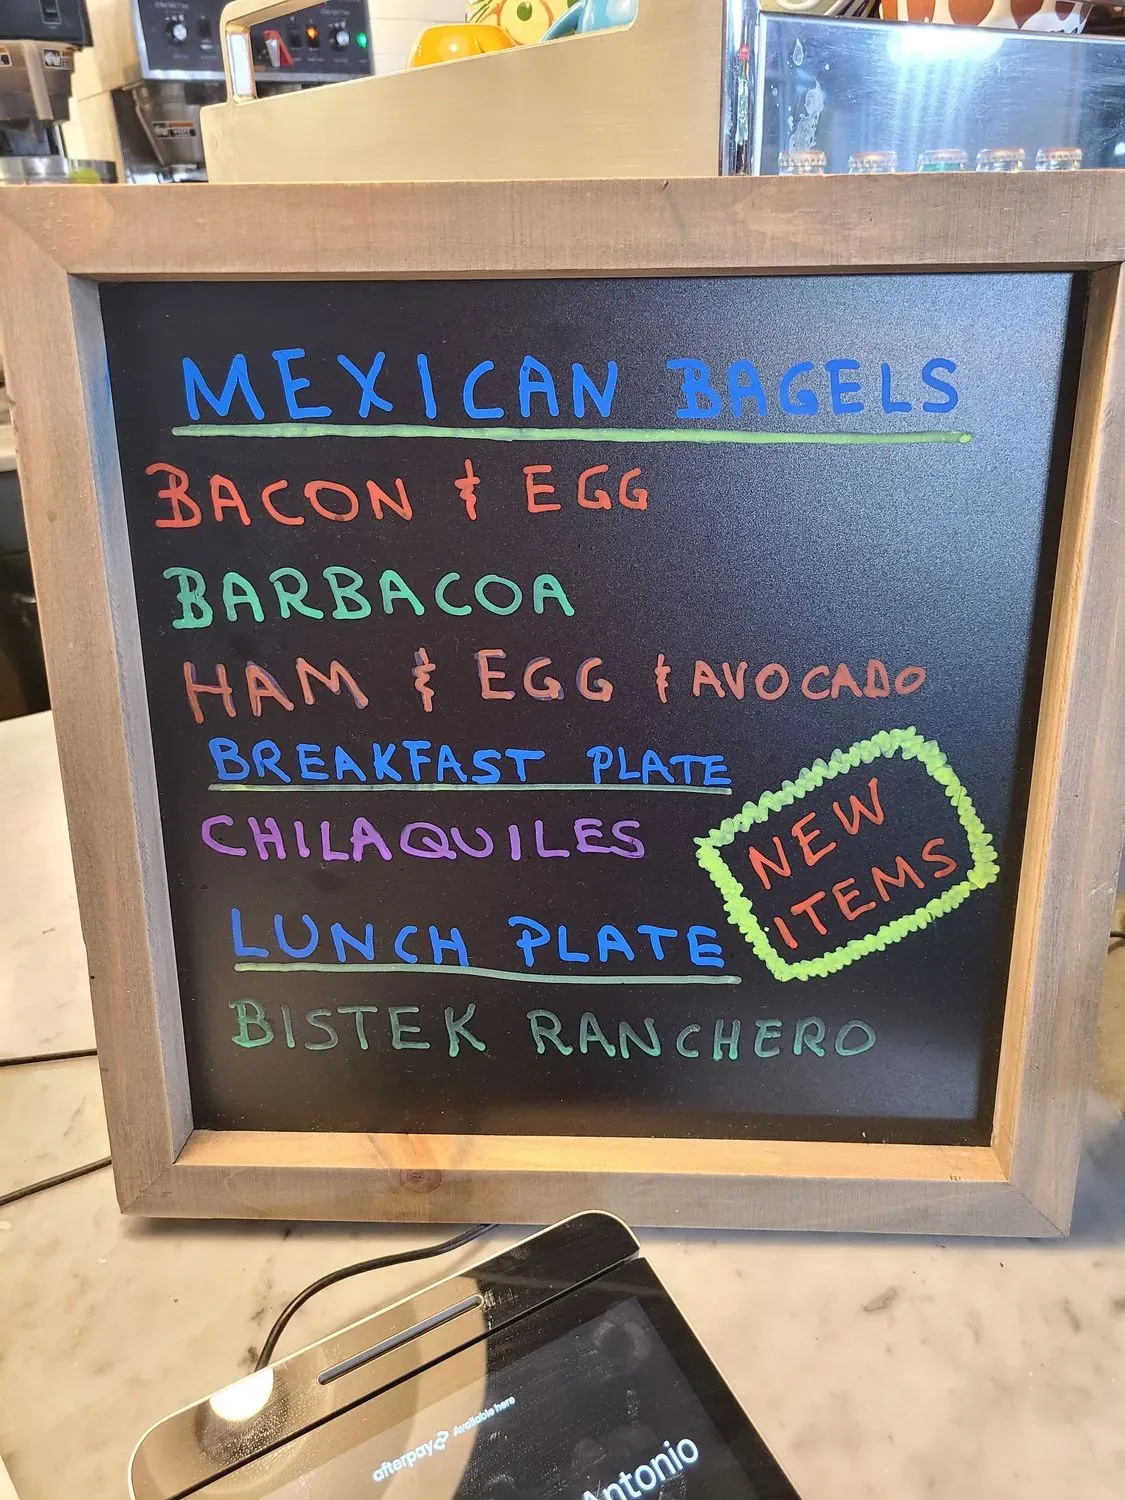 MEXICAN BAGELS
BACON & EGG
BARBACOA
HAM & EGG & AVOCADO
BREAKFAST PLATE
CHILAQUILES
NEW
ITEMS
LUNCH PLATE
BISTEK RANCHERO
afterpay Available here
Antonio